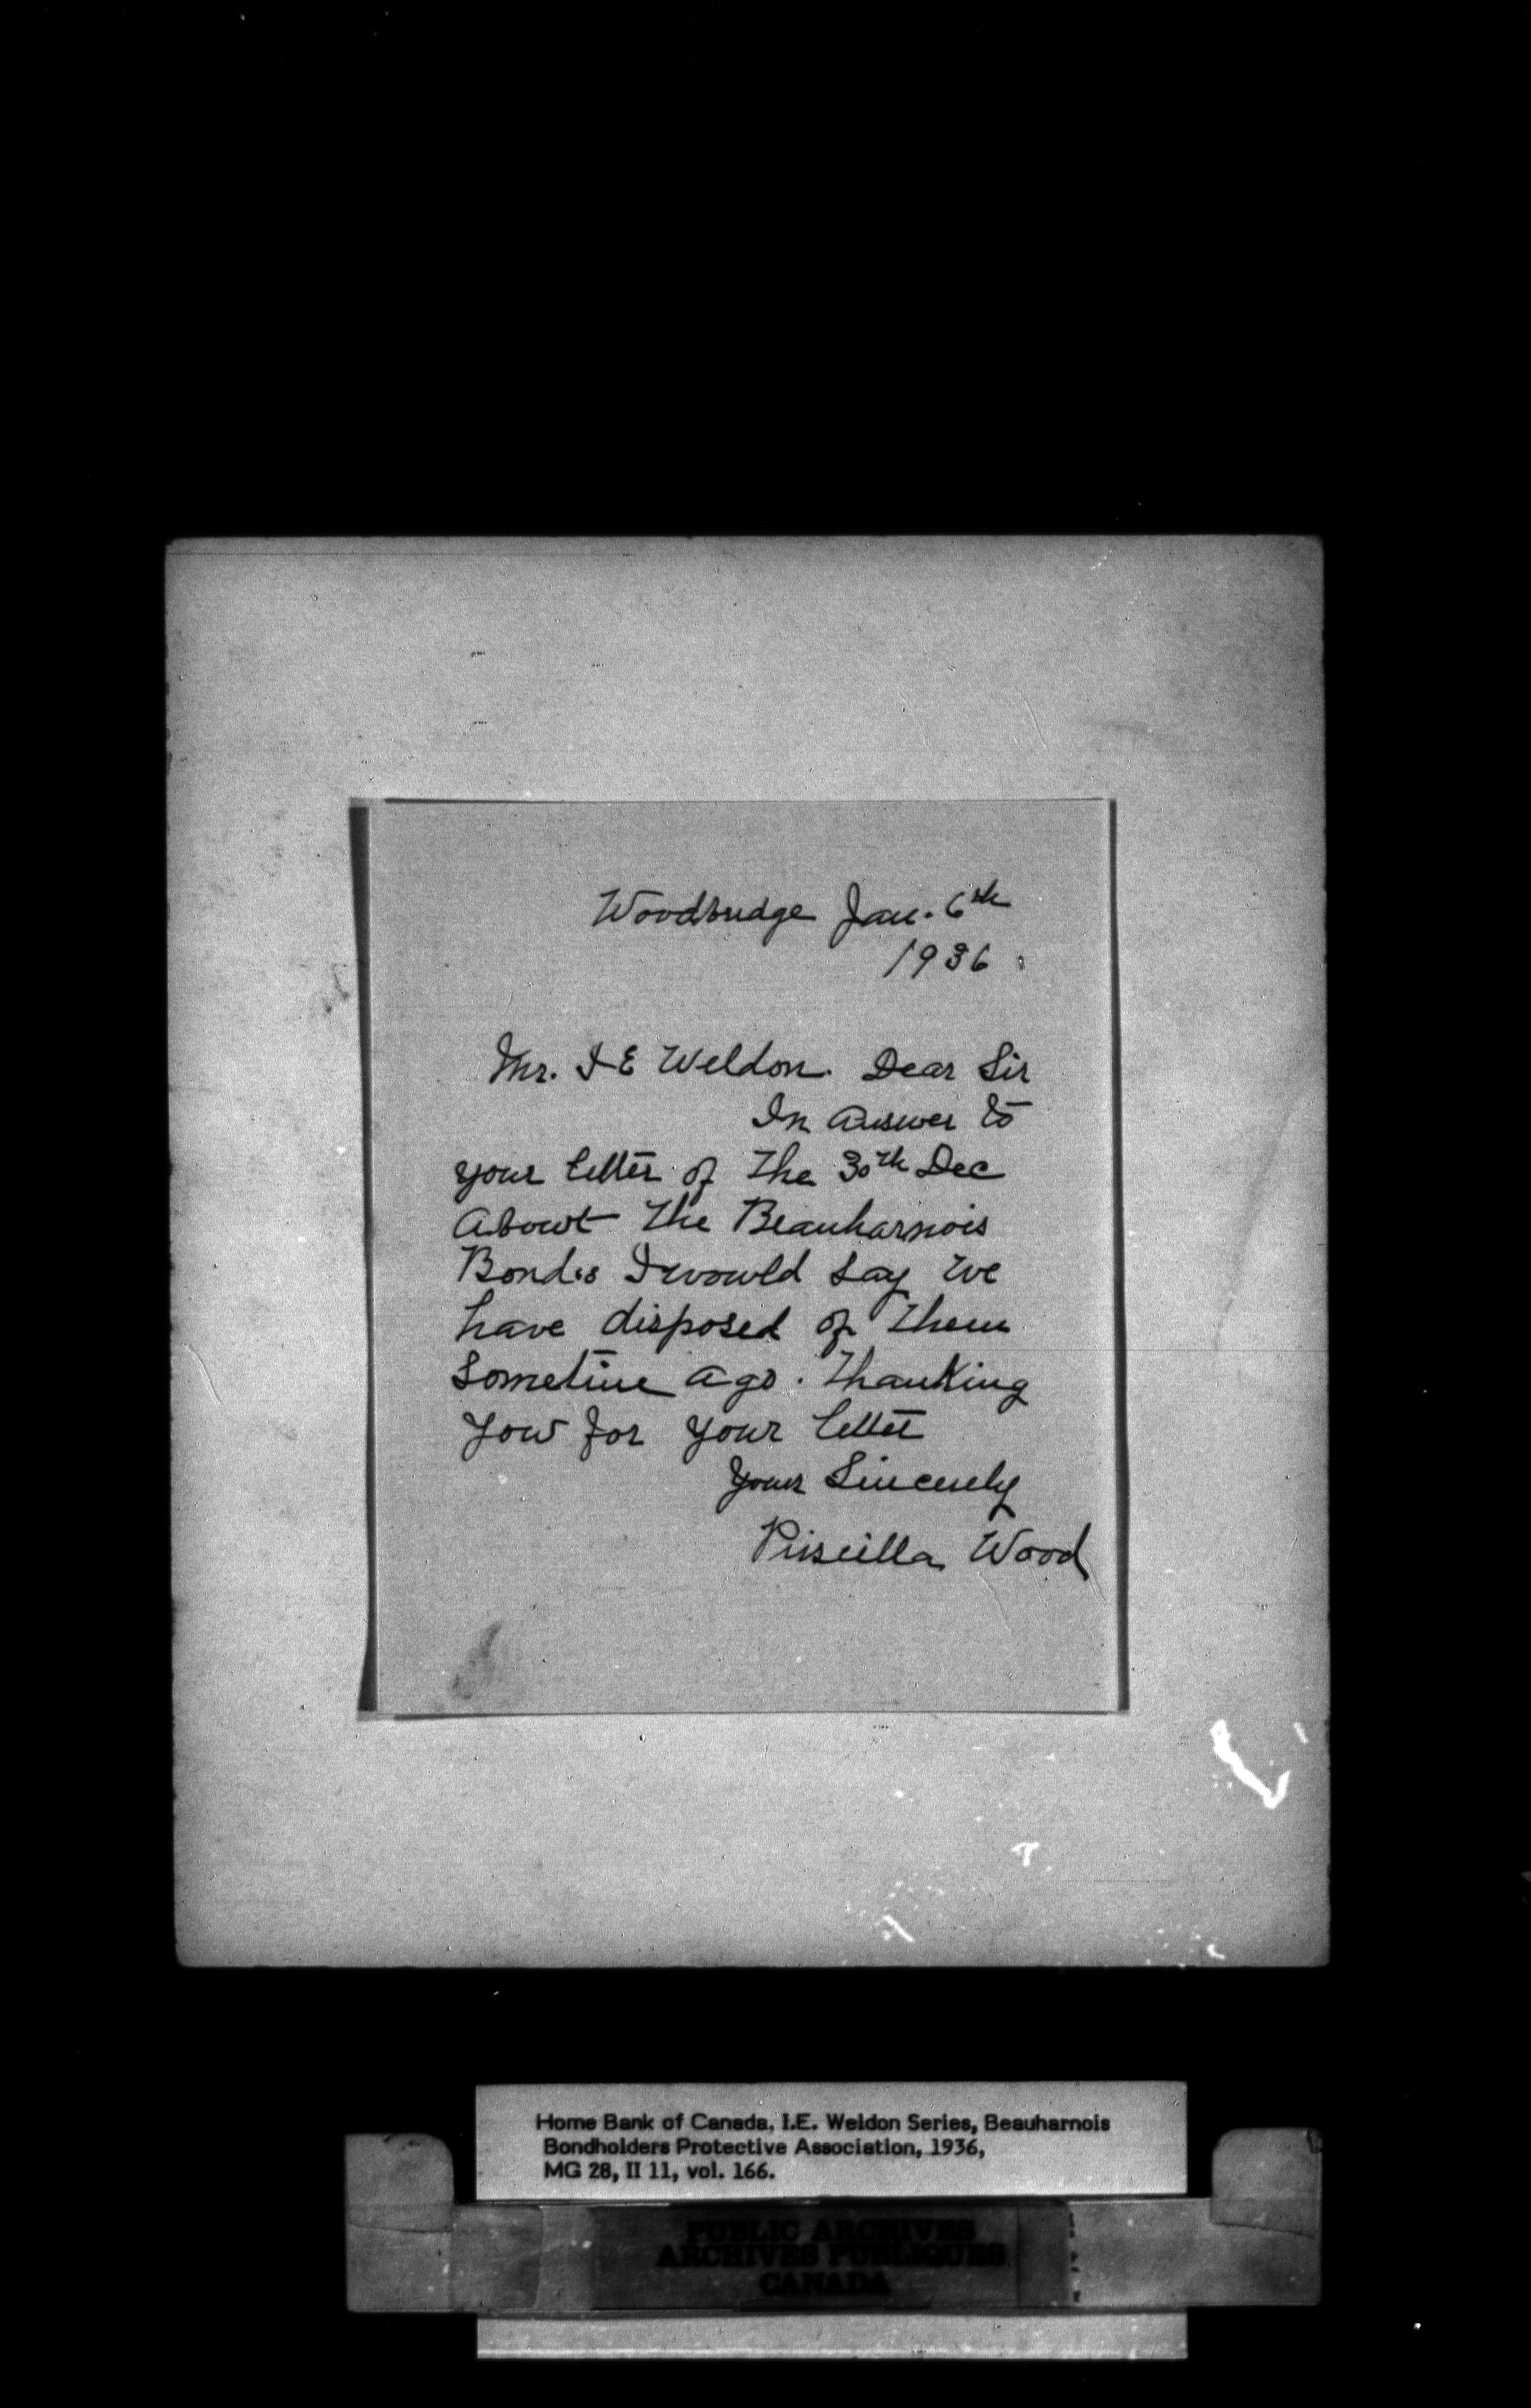 Woodbridge Jan. 6th
1936
Mr. I E Weldon. Dear Sir
In answer to
your letter of the 30th Dec
about the Beauharnois
Bonds I would say we
have disposed of them
sometime ago. Thanking
you for your letter
Yours Sincerely
Priscilla Wood
Home Bank of Canada, I.E. Weldon Series, Beauharnois
Bondholders Protective Association, 1936,
MG 28, II 11, vol. 166.
PUBLIC ARCHIVES
ARCHIVES PUBLIQUES
CANADA